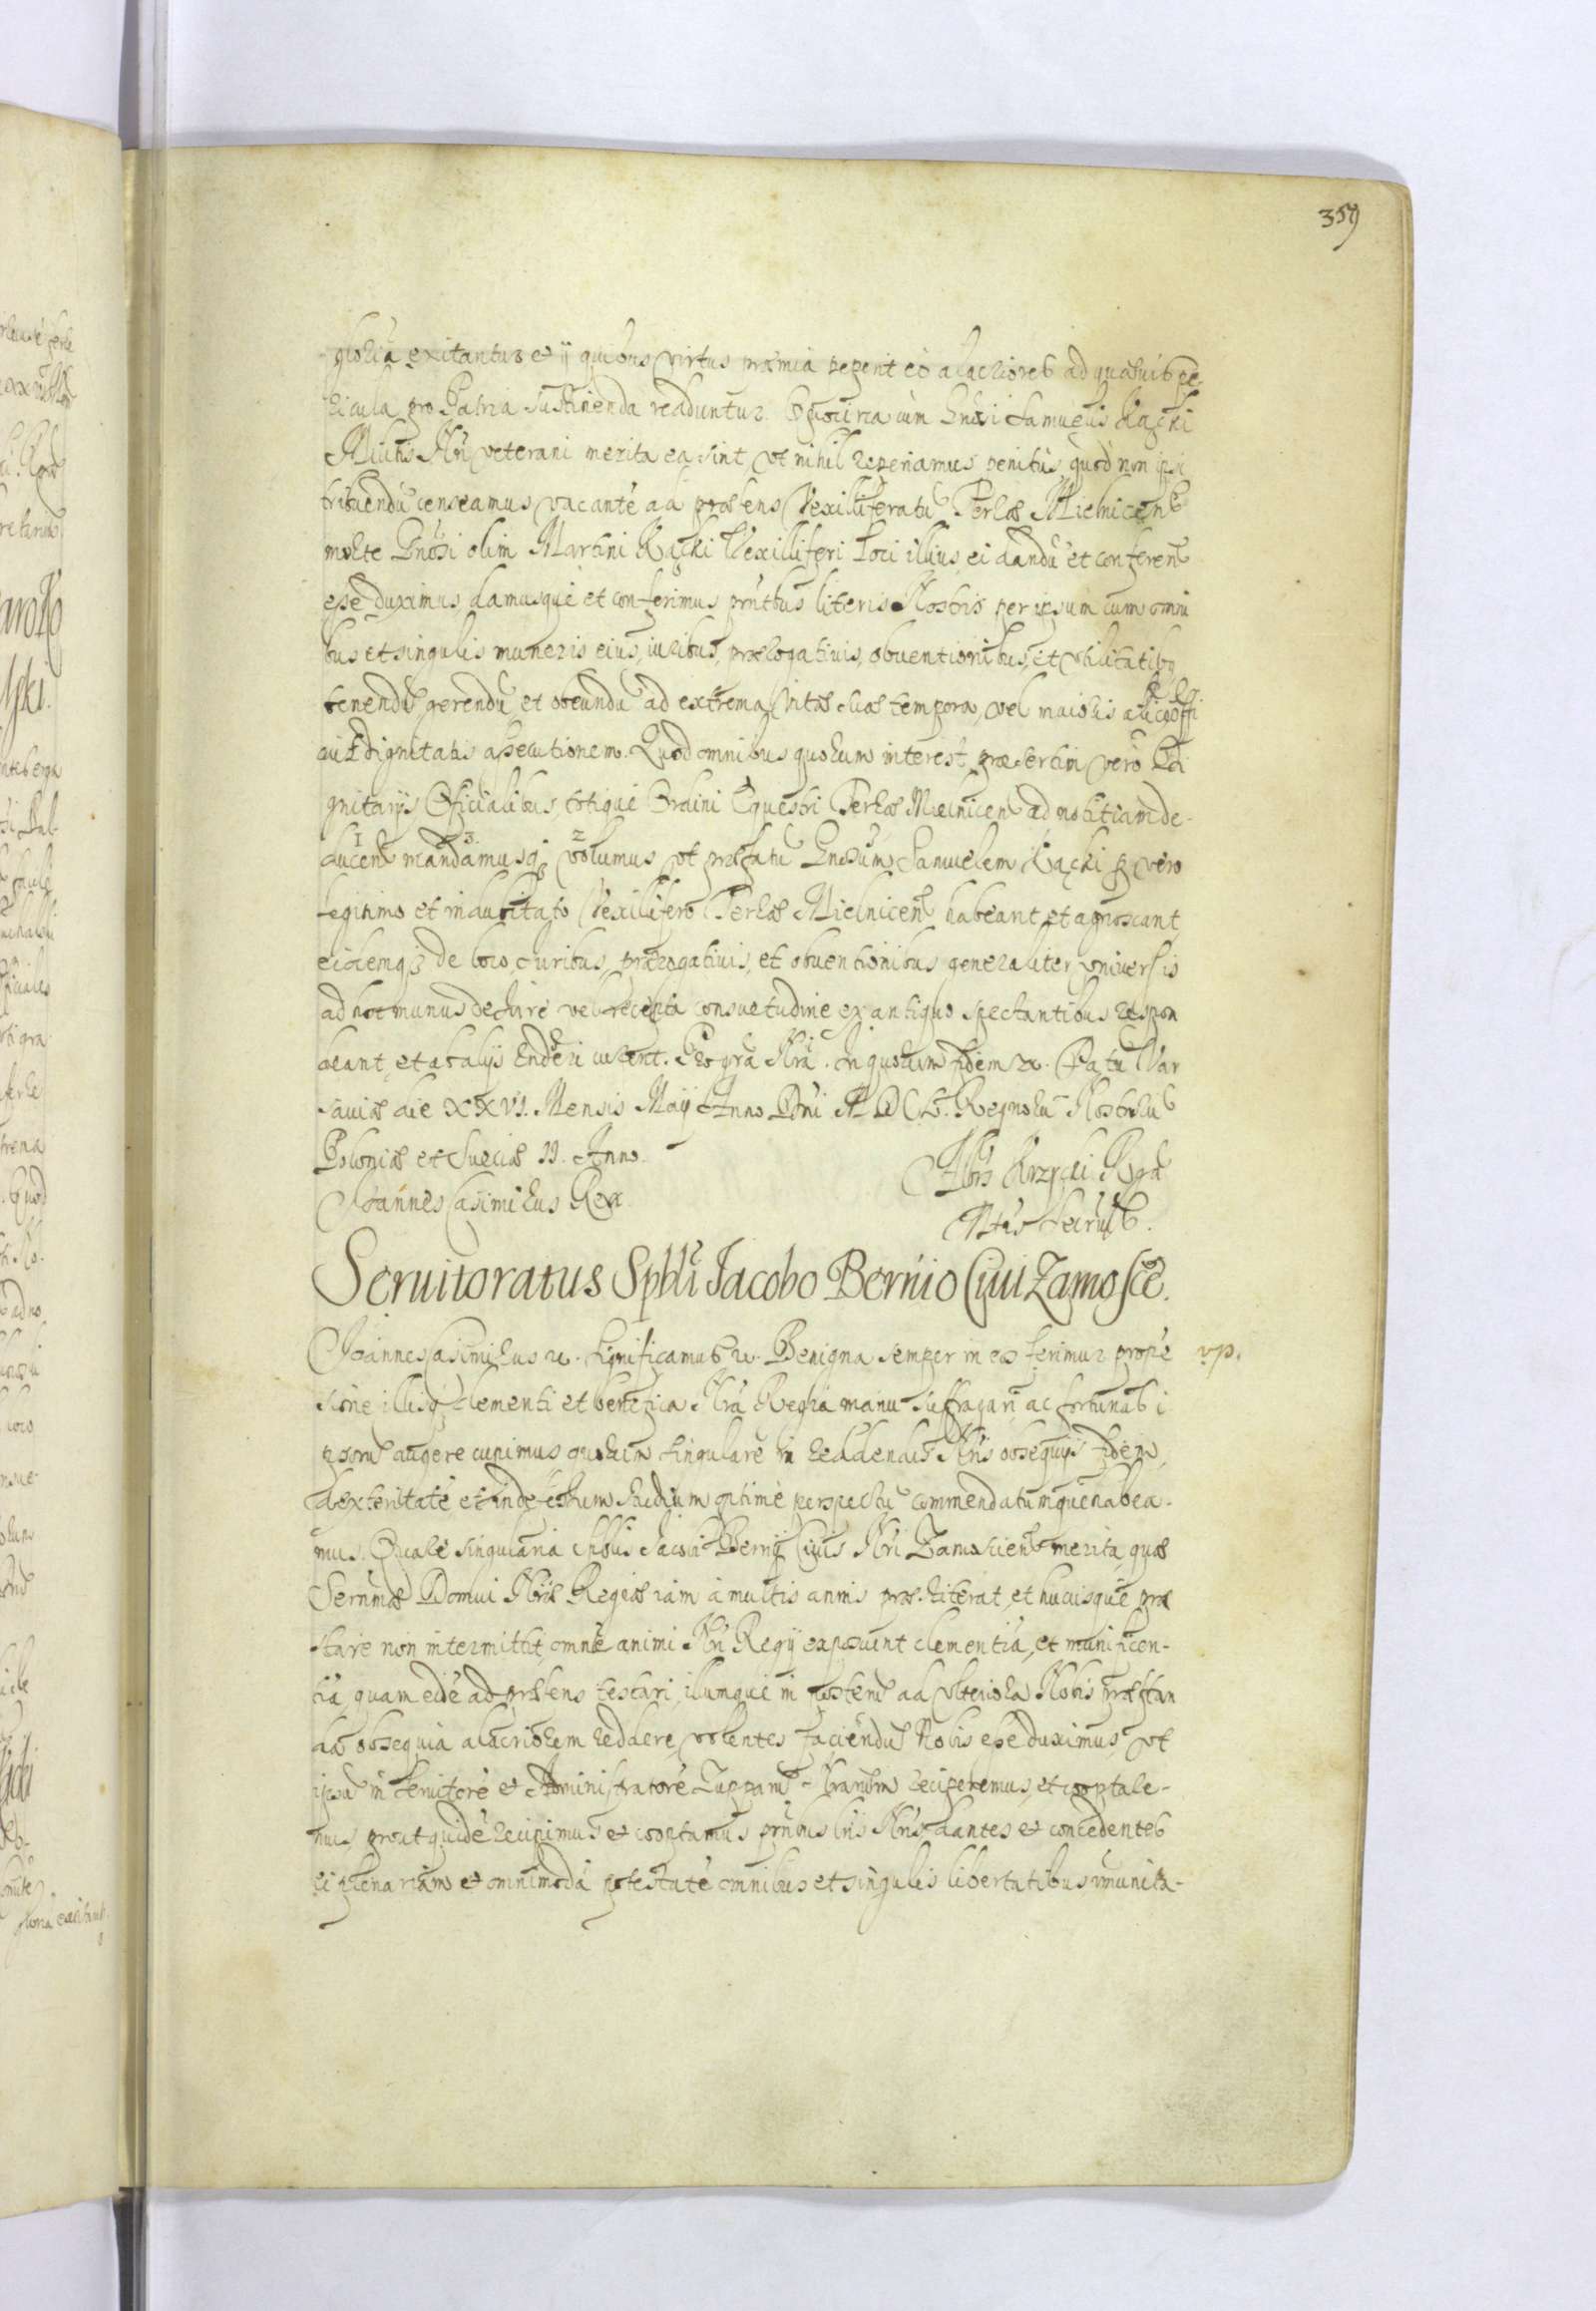 359
gloria exitantur et ij quibus virtus præmia peperit eo alacriores ad quævis pe-
ricula pro Patria sustinenda redduntur. Quocirca cum Gnosi Samuelis Kącki
Militis Nri veterani merita ea sint, vt nihil reperiamus penitus, quod non ipsi
tribuendū censeamus, vacantē ad præsens Vexilliferatū Terræ Mielnicen
morte Gnosi olim Martini Kącki Vexilliferi Loci illius, ei dandū et conferen
esse duximus, damusque et conferimus pntibus literis Nostris per ipsum cum omni
bus et singulis muneris eius, iuribus, prærogativis, obventionibus, et vtilitatibus
tenendū gerendū et obeundū ad extrema vitæ suæ tempora, vel maioris alicuius offi
cii et dignitatis assecutionem. Quod omnibus quorum interest, præsertim vero Di
gnitarijs Officialibus, totique Ordini Equestri Terræ Mielnicen ad notitiam de-
1 3 2
ducen mandamusq; volumus vt præfatū Gnosum Samuelem Kącki p vero
legitimo et indubitato Vexillifero Terræ Mielnicen habeant et agnoscant,
eidemq; de loco, iuribus, prærogativis, et obventionibus generaliter vniversis
ad hoc munus de iure vel recepta consuetudine ex antiquo spectantibus respon
deant, et ab alijs responderi curent. Pro gra Nra. In quorum fidem &. Datū Var
saviæ die XXVI. Mensis Maij Anno Dni M D C L. Regnorū Nostrorū
Poloniæ et Sueciæ II. Anno.
Joannes Casimirus Rex.
Albertus Krzycki Regen
Mtis Secrius.
Servitoratus Spbli Jacobo Bernio Civi Zamosce.
Joannes Casimirus &. Significamus &. Benigna semper in eos ferimur propē
vp.
sione illisq clementi et benefica Nra Regia manu suffragari ac fortunas i
psorū augere cupimus quorum singularē in reddendis Nris obsequijs fidem,
dexteritatē et indefessum studium optime perspectū commendatumque habea-
mus. Quale singularia Spblis Jacobi Bernij Civis Nri Zamoscien merita, quæ
Sernmæ Domui Nræ Regiæ iam a multis annis præstiterat, et hucusque præ
stare non intermittit, omnē animi Nri Regij exposcunt clementiā, et munificen-
tiā, quam eidē ad præsens testari, illumque in posterū ad vlteriora Nobis præstan
da obsequia alacriorem reddere volentes faciendū Nobis esse duximus, vt
ipsū in Servitorē et Administratorē Zupparū Nrarum reciperemus, et cooptare-
mus, prout quidē recipimus et cooptamus pntibus lris Nris dantes et concedentes
ei plenariam et omnimodā potestatē omnibus et singulis libertatibus immunita-